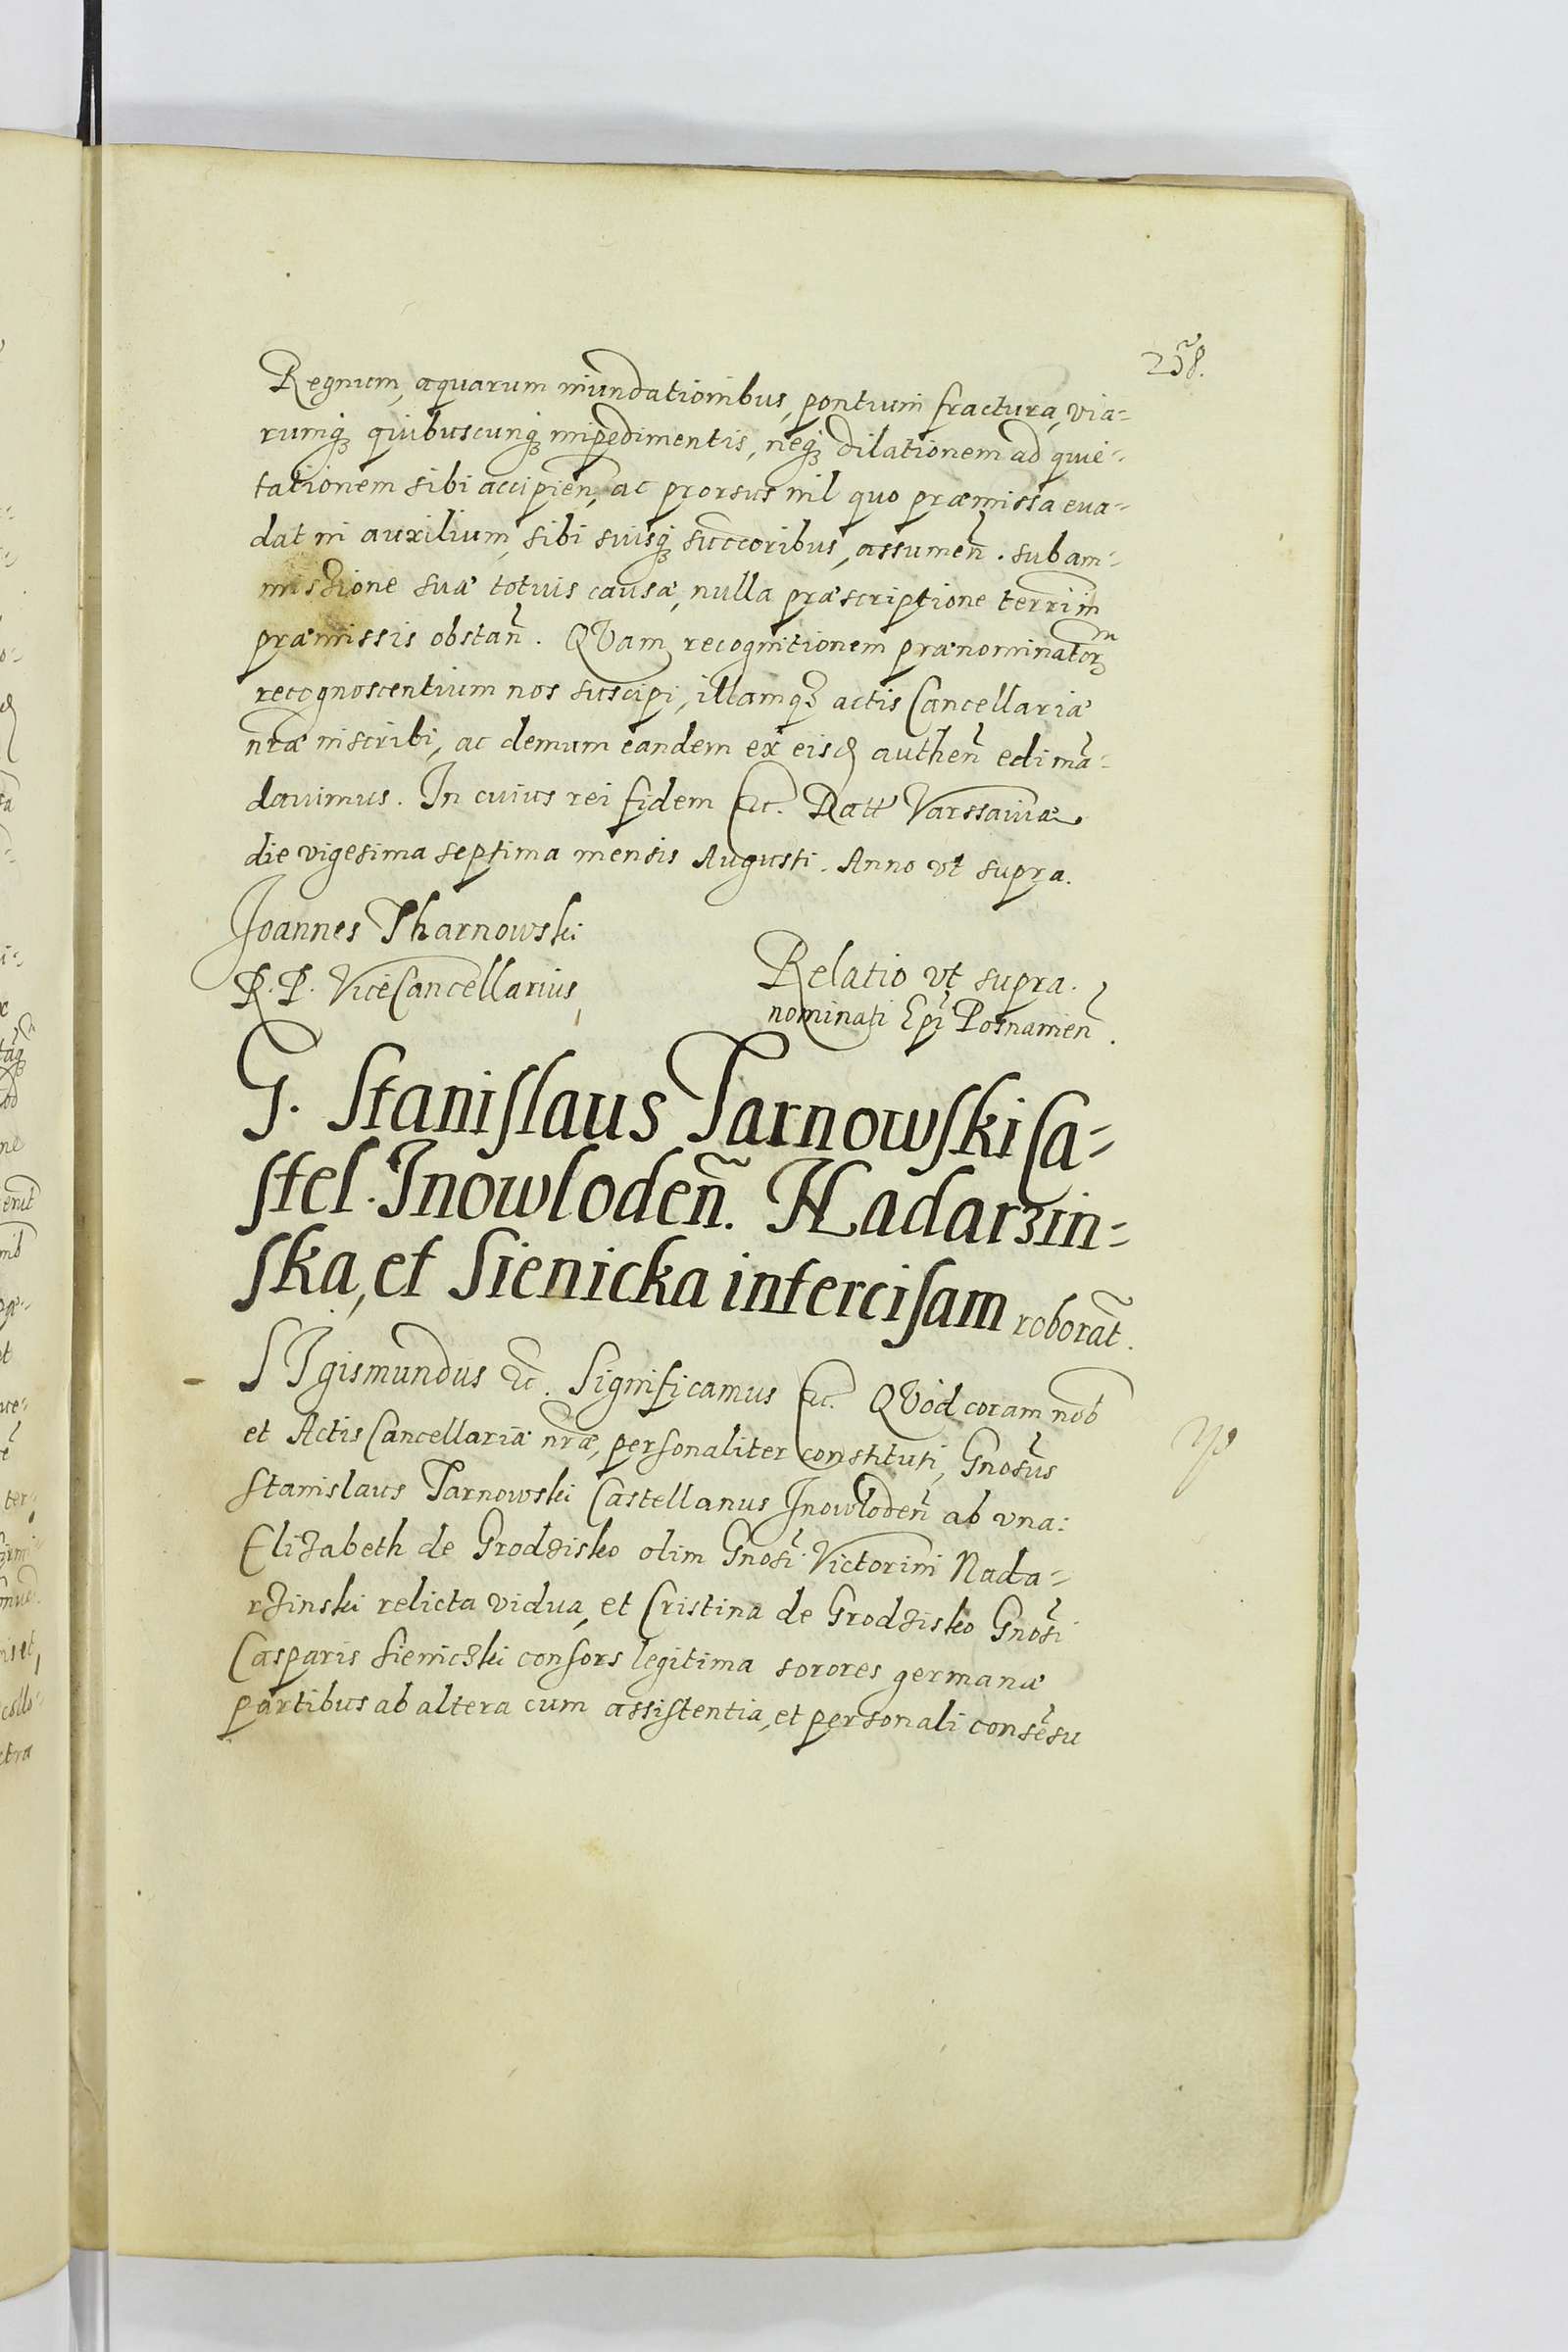 258.
Regnum, aquarum inundationibus, pontium fractura, via-
rumqꝫ quibuscunqꝫ impedimentis, neqꝫ dilationem ad quie-
tationem sibi accipien̄, ac prorsus nil quo præmissa eua-
dat in auxilium, sibi suisqꝫ succcoribus, assumen̄. sub am-
missione suæ totius causæ, nulla præscriptione terrim̄
præmissis obstan̄. QVam recognitionem prænominator̄
recognoscentium nos suscipi, illamqꝫ actis Cancellariæ
nr̄æ inscribi, ac demum eandem ex eisd authen̄ edi mā-
dauimus. In cuius rei fidem Etc. Datt Varssauiæ
die vigesima septima mensis Augusti. Anno vt supra.
Joannes Tharnowski
R. P. ViceCancellarius,
Relatio vt supra.
nominati Epī Posnamien̄.
G. Stanislaus Tarnowski Ca-
stel. Inowloden̄. Nadarzin-
ska, et Sienicka intercisam roborāt.
SIgismundus Etc. Significamus Etc. QVod coram nob̄
et Actis Cancellariæ nr̄æ, personaliter constituti, Gnosūs
Stanislaus Tarnowski Castellanus Inowloden̄ ab vna:
Elizabeth de Grodzisko olim Gnosī Victorini Nada-
rzinski relicta vidua, et Cristina de Grodzisko Gnosī
Casparis Sieniczki consors legitima sorores germanæ
partibus ab altera cum assistentia, et personali consēsu